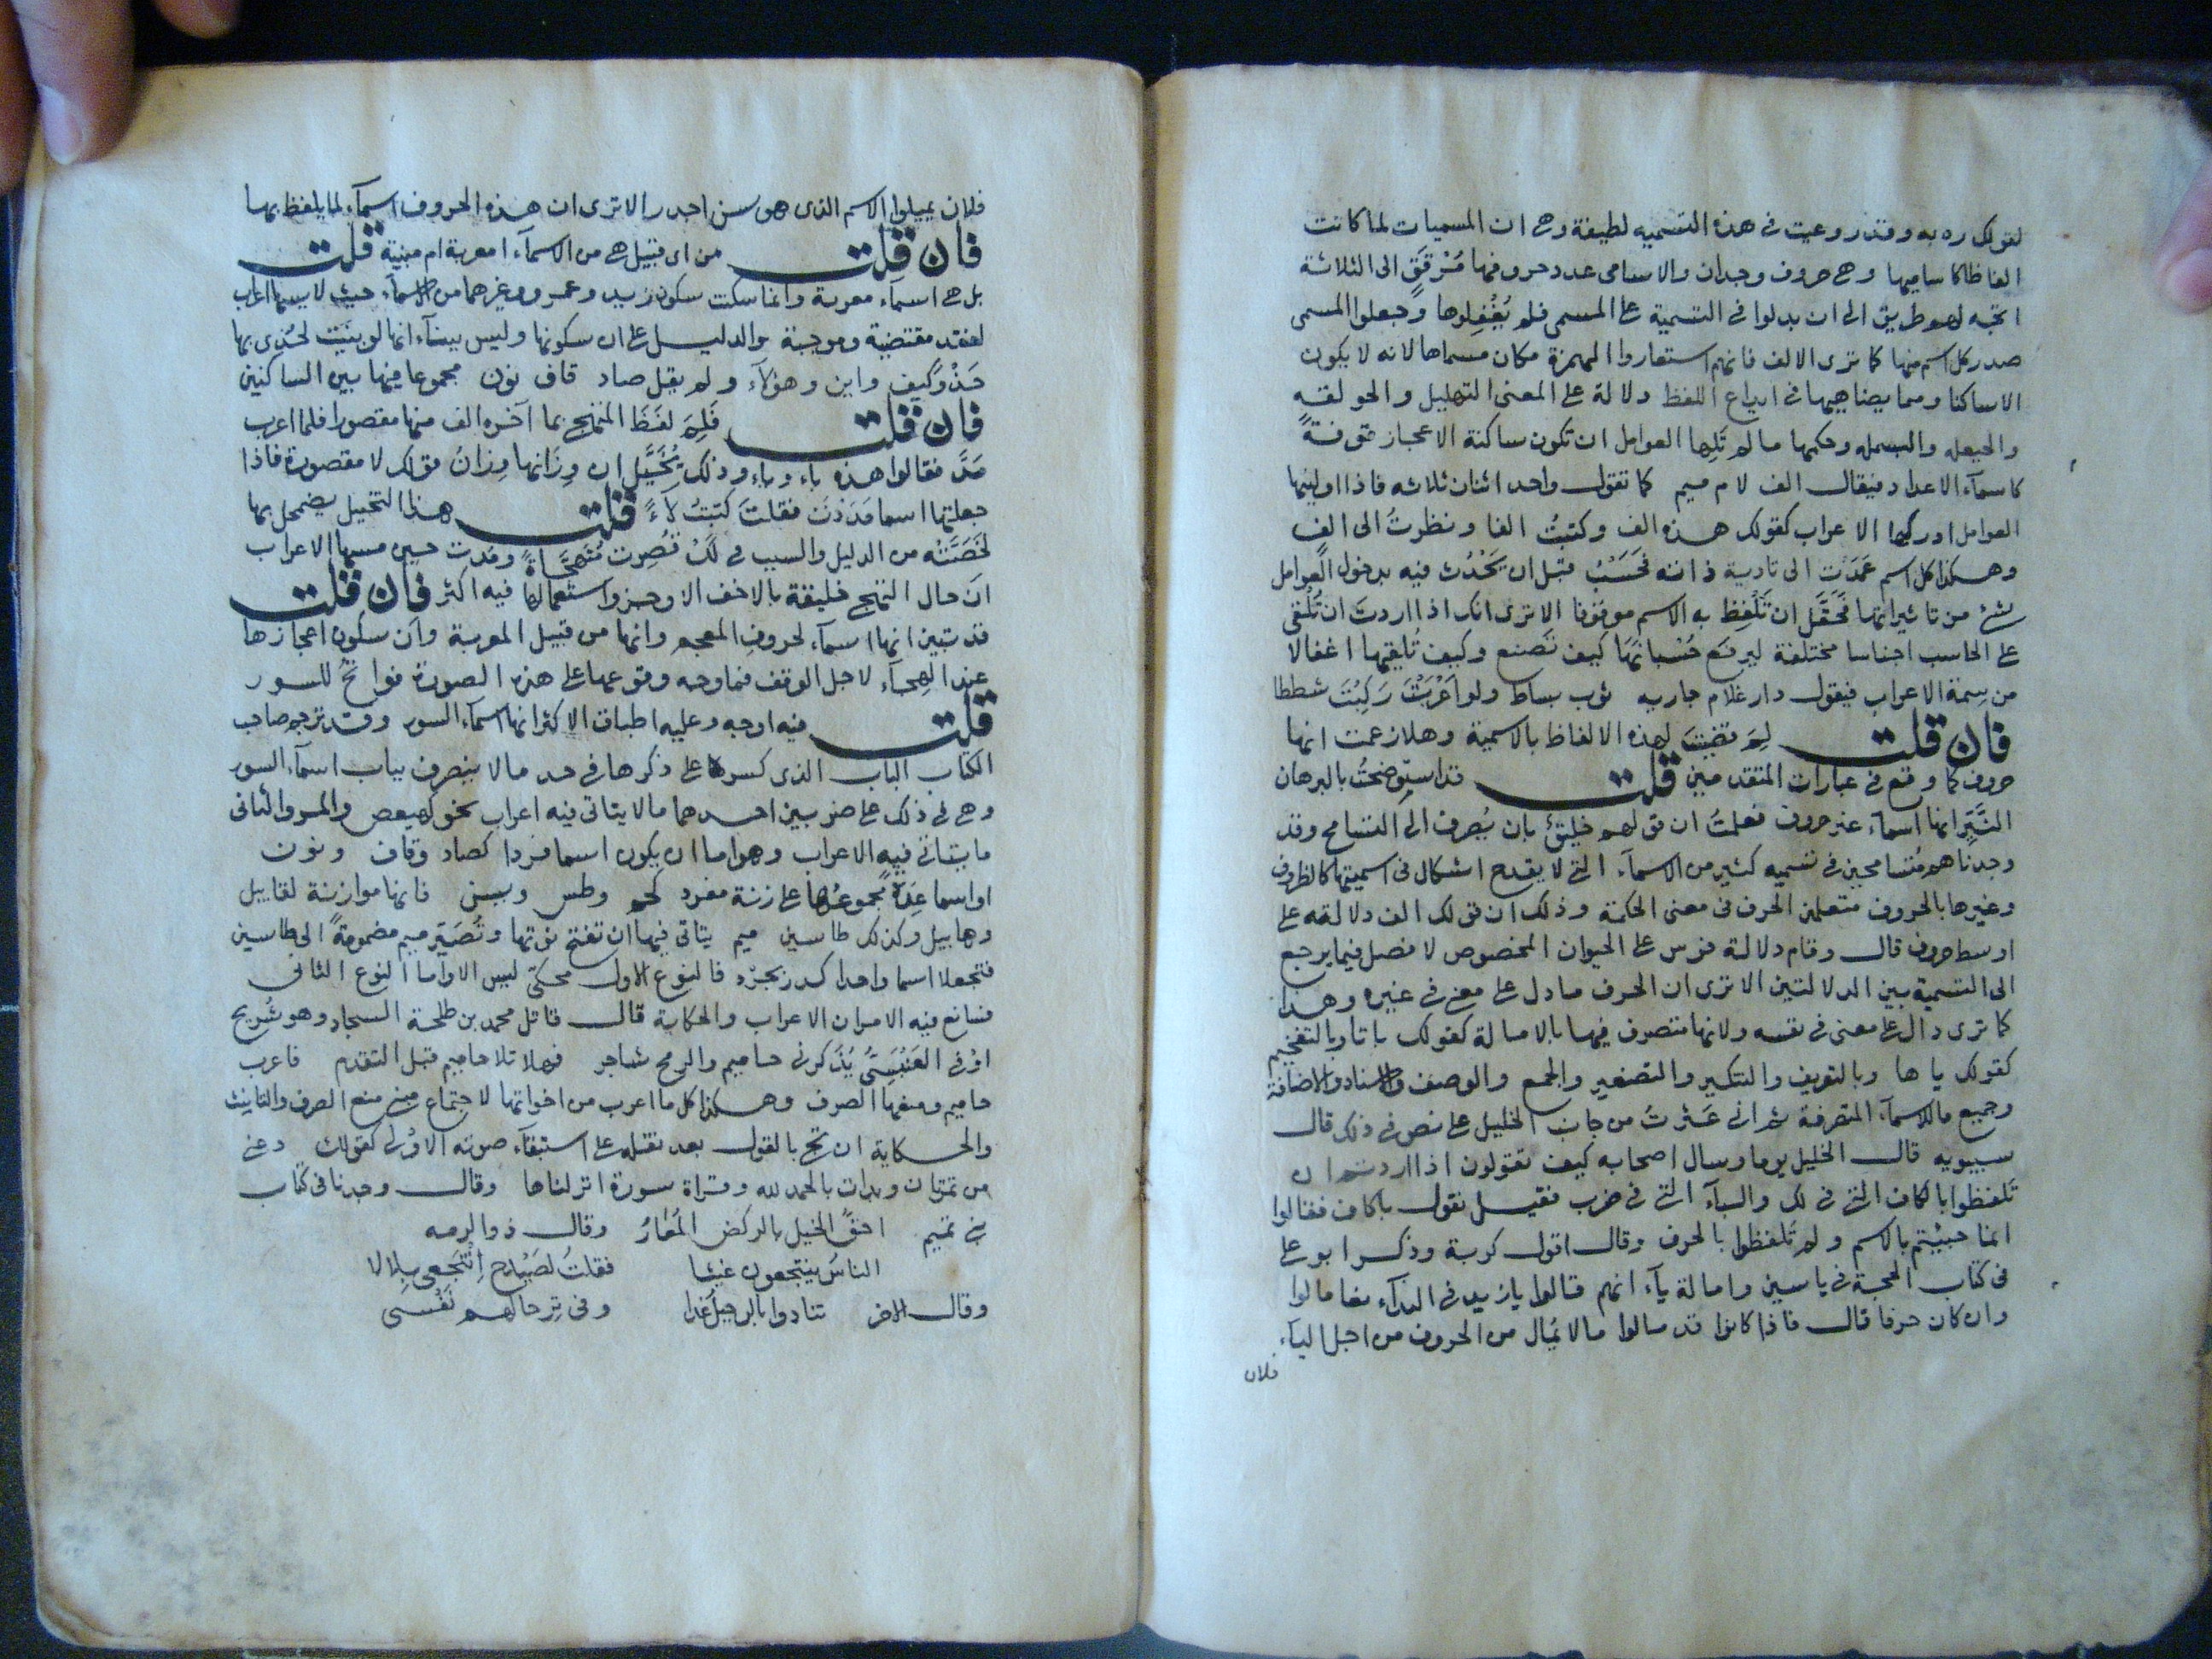 لقولك ره به وقد روعيت فى هذه التسميه لطيفة وهى ان المسميات لما كانت
الفاظا كاساميها وهى حروف وحدان والاسامى عدد حروفها مُرْتَقٍ الى الثلاثة
اتجه لهم طريق الى ان يدلوا فى التسمية على المسمى فلم يُغْفِلوها وجعلوا المسمى
صدر كل اسم منها كما ترى الا الالف فانهم استعاروا الهمزة مكان مسماها لانه لا يكون
الا ساكنا ومما يضاهيها فى ايداع اللفظ دلالة على المعنى التهليل والحولقه
والحيعله والبسمله وحكمها ما لم تَلِها العوامل ان تكون ساكنة الاعجاز موقوفةً
كاسمآء الاعداد فيقال الف لام ميم كما تقول واحد اثنان ثلاثه فاذا اوليتها
العوامل ادركها الاعراب كقولك هذه الف وكتبتُ الفا ونظرتُ الى الفٍ
وهكذا كل اسم عَمَدْت الى تادية ذاته فَحَسْبُ قبل ان يَحْدُث فيه بدخول العوامل
شئ من تاثيراتها فَحَقَّكَ ان تَلْفِظ به الاسم موقوفا الا ترى انك اذا اردتَ ان تُلْقى
على الحاسب اجناسا مختلفة ليرفَع حُسْبانَها كيف تَصنع وكيف تُلقيها اغفالا
من سِمة الاعراب فيقول دار غلام جاريه ثوب بساط ولو اَعْرَبْتَ رَكِبْتَ شططا
فان قلت لِمَ قضيتَ لهذه الالفاظ بالاسمية وهلا زعمت انها
حروف كما وقع فى عبارات المتقدمين قلت قد استوضحتُ بالبرهان
النَّيِّر انها اسمآء غير حروف فعلمتُ ان قولهم خليقٌ بان يُصرف الى التسامح وقد
وجدناهم مُتسامحين فى تسميه كثير من الاسمآء التى لا يقدح اشكال فى اسميتها كالظروف
وغيرها بالحروف مستعملين الحرف فى معنى الكلمة وذلك ان قولك الف دلالته على
اوسط حروف قال وقام دلالة فرس على الحيوان المخصوص لا فضل فيما يرجع
الى التسمية بين الدلالتين الا ترى ان الحرف ما دل على معنى فى غيره وهذا
كما ترى دال على معنى فى نفسه ولانها متصرف فيها بالامالة كقولك با تا وبالتفخيم
كقولك يا ها وبالتعريف والتنكير والتصغير والجمع والوصف والاسناد والاضافة
وجميع ما للاسمآء المتصرفة ثم انى عَثرتُ من جانب الخليل على نص فى ذلك قال
سيبويه قال الخليل يوما وسال اصحابه كيف تقولون اذا اردتم ان
تَلفظوا بالكاف التى فى لك والبآء التى فى ضرب فقيل نقول باكاف فقالوا
انما جيئتم بالاسم ولم تَلفظوا بالحرف وقال اقول كه به وذكر ابو على
فى كتاب الحجة فى ياسين وامالة يآء انهم قالوا يا زيد فى الندآء فامالوا
وان كان حرفا قال فاذا كانوا قد امالوا ما لا يُمال من الحروف من اجل اليآء
فلان
فلان يميلوا الاسم الذى هو سين اجدر الا ترى ان هذه الحروف اسمآء لما يلفظ بها
فان قلت من اى قبيل هى من الاسمآء امعربة ام مبنية قلت
بل هى اسمآء معربة وانما سكنت سكون زيد وعمرو وغيرهما من الاسمآء حيث لا يمسها اعراب
لفقد مقتضية وموجبة والدليل على ان سكونها وليس ببنآء انها لو بنيت لحُذى بها
حَذْوَ كيف واين وهؤلآء ولم يقل صاد قاف نون مجموعا فيها بين الساكنين
فان قلت فَلِمَ لفَظَ المتهجى بما آخره الف منها مقصورا فلما اعرب
مَدَّ فقالوا هذه باء وياء وذلك يُخَيَّل ان وِزَانها وِزانُ قولك لا مقصورة فاذا
جعلتها اسما مَدَدْتَ فقلتَ كتبتُ لاءً قلت هذا التخيل يضمحل بما
لخَصَتْه من الدليل والسبب فى اَنْ قُصِرت مُتَهَجَّاةً ومُدت حين مسها الاعراب
ان حال التهجى خليقة بالاخف الاوجز واستعمالها فيه اكثر فان قلت
قد تبين انها اسمآء لحروف المعجم وانها من قبيل المعربة وان سكون اعجازها
عند الهجآء لاجل الوقف فما وجه وقوعها على هذه الصورة فواتحُ للسور
قلت فيه اوجه وعليه اطباق الاكثر انها اسمآء السور وقد ترجم صاحب
الكتاب الباب الذى كسره على ذكرها فى حد ما لا ينصرف بباب اسمآء السور
وهى فى ذلك على ضربين احدهما ما لا يتاتى فيه اعراب نحو كهيعص والمر والثانى
ما يتاتى فيه الاعراب وهو اما ان يكون اسما فردا كصاد وقاف ونون
او اسما عِدة مجموعُها على زنة مفرد كحم وطس ويس فانها موازنة لقابيل
وهابيل وكذلك طاسين ميم يتاتى فيها ان تفتح نونها وتُصَيّر ميم مضمومةً الى طاسين
فتجعلا اسما واحدا كدر بجرد فالنوع الاول محكىٌ ليس الا واما النوع الثانى
فسائع فيه الامران الاعراب والحكاية قال قاتل محمد بن طلحة السجاد وهو شُريح
اوفى العَبْسِىُّ يُذَكرنى حاميم والرمح شاجر فهلا تلا حاميم قبل التقدم فاعرب
حاميم ومنعها الصرف وهكذا كل ما اعرب من اخواتها لاجتماع سببى منع الصرف والتانيث
والحكاية ان تجئ بالقول بعد نقله على استبقآء صورته الاُولى كقولك دعنى
من تمرتان وبدات بالحمد لله وقراة سورة انزلناها وقال وجدنا فى كتاب
بنى تميم احقُّ الخيل بالركض المُعَارُ وقال ذو الرمه
الناسُ ينتجعون غيثا فقلتُ لصَيْدح اِنْتَجعى بلالا
وقال الاخر تنادوا بالرحيلُ غدا وفى تِرحالهم نَفْسى